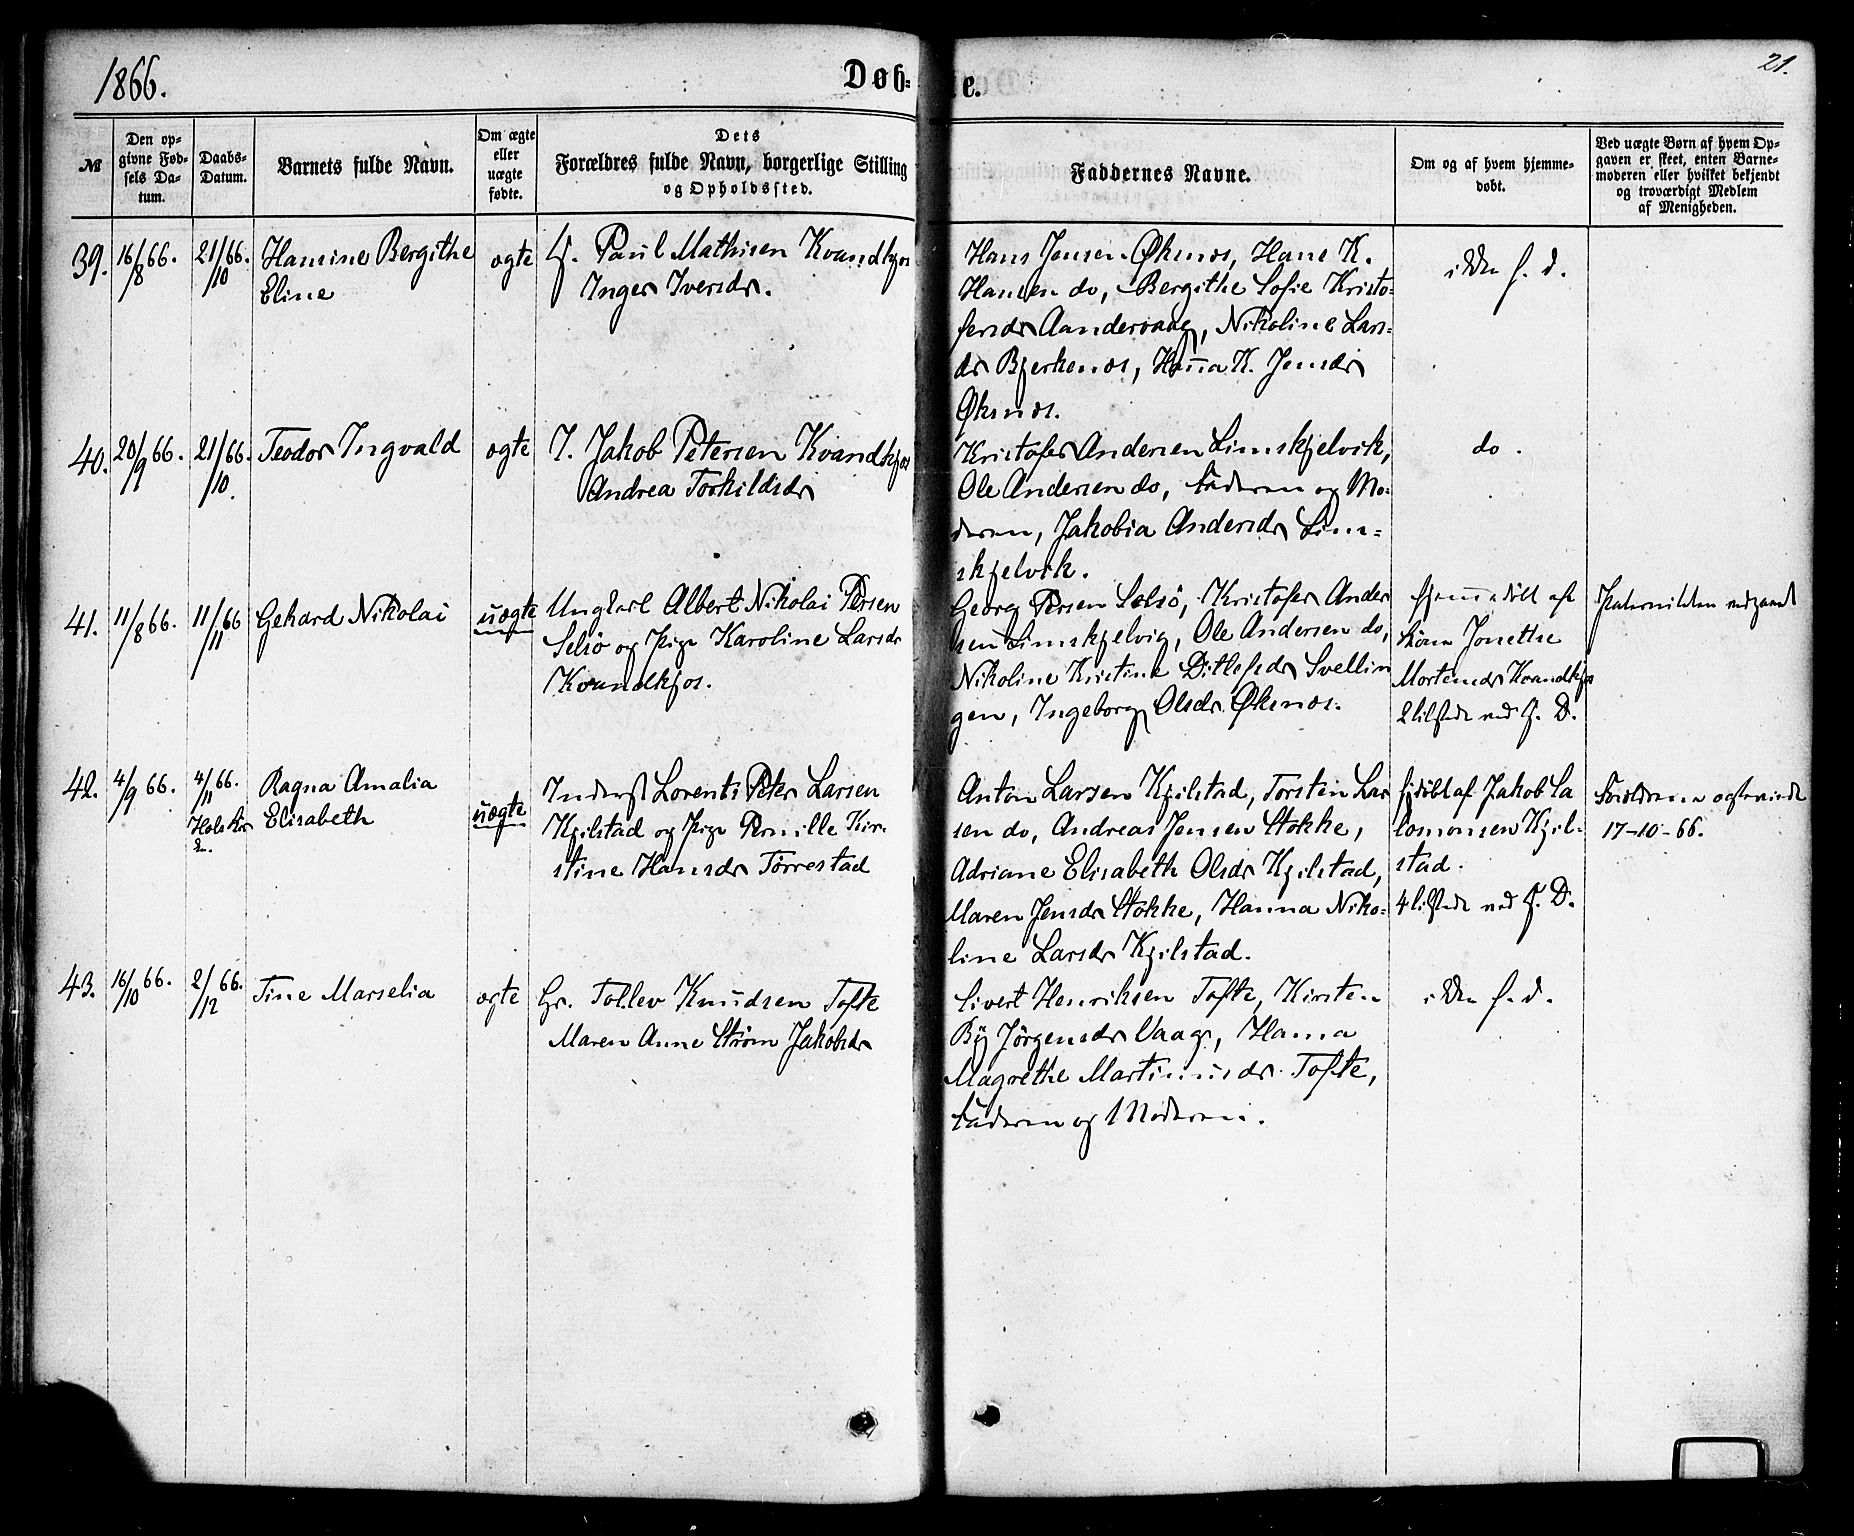 1866.
Døb-
e.
21.
№
Den op-
givne Fød-
sels Da-
tum.
Daabs-
Datum.
Barnets fulde Navn.
Om ægte
eller
uægte
fødte.
Dets
Forældres fulde Navn, borgerlige Stilling
og Opholdssted.
Faddernes Navne.
Om og af hvem hjemme-
døbt.
Ved uægte Børn af hvem Op-
gaven er skeet, enten Barne-
moderen eller hvilket bekjendt
og troværdigt Medlem
af Menigheden.
39.
16/8 66.
21/10 66.
Hansine Bergithe
Eline
ægte
Paul Mathisen Kvandkjos
Inger Iversdr.
Hans Jensen Øksnæs, Hans K.
Hansen do, Bergithe Sofie Kristo-
fersdr Aandervaag, Nikoline Lars-
dr Bjerkenæs, Hanna K. Jensdr
Øksnæs.
ikke h. d.
40.
20/9 66.
21/10 66.
Teodor Ingvald
ægte
I. Jakob Petersen Kvandkjos
Andrea Torkildsdr
Kristofer Andersen Simskjelvik,
Ole Andersen do, Faderen og Mo-
deren, Jakobia Andersdr Sim-
skjelvik.
do.
41.
11/8 66.
11/11 66
Gehard Nikolai
uægte
Ungkarl Albert Nikolai Persen
Selsø og Pige Karoline Larsdr
Kvandkjos.
Georg Persen Selsø, Kristofer Ander
sen Simskjelvig, Ole Andersen do,
Nikoline Kristine Ditlefsdr Svellin
gen, Ingeborg Olsdr Øksnæs.
hjemmedøbt af
Kone Jonetthe
Mortensdr Kvandkjos
2 tilstede ved H. D.
42.
4/9 66.
4/11 66.
Hols Kir
Ragna Amalia
Elisabeth
uægte
Inderst Lorents Peter Larsen
Kjilstad og Pige Pernille Kir-
stine Hansdr Tørrestad
Anton Larsen Kjilstad, Torstein Lar
sen do, Andreas Jensen Stokke,
Adriane Elisabeth Olsdr Kjilstad,
Maren Jensdr Stokke, Hanna Niko-
line Larsdr Kjilstad.
hjdøbt af Jakob Sa
lomonsen Kjil-
stad.
4 tilstede ved H. D.
Forældrene ægteviede
17-10-66.
43.
16/10 66.
2/12 66.
Tine Marselia
ægte
Gr. Tollev Knudsen Tofte
Maren Anne Strøm Jakobsdr
Sivert Henriksen Tofte, Kirsten
By Jørgensdr Vaag, Hanna
Magrethe Martinusdr Tofte,
Faderen og Moderen.
ikke h. d.